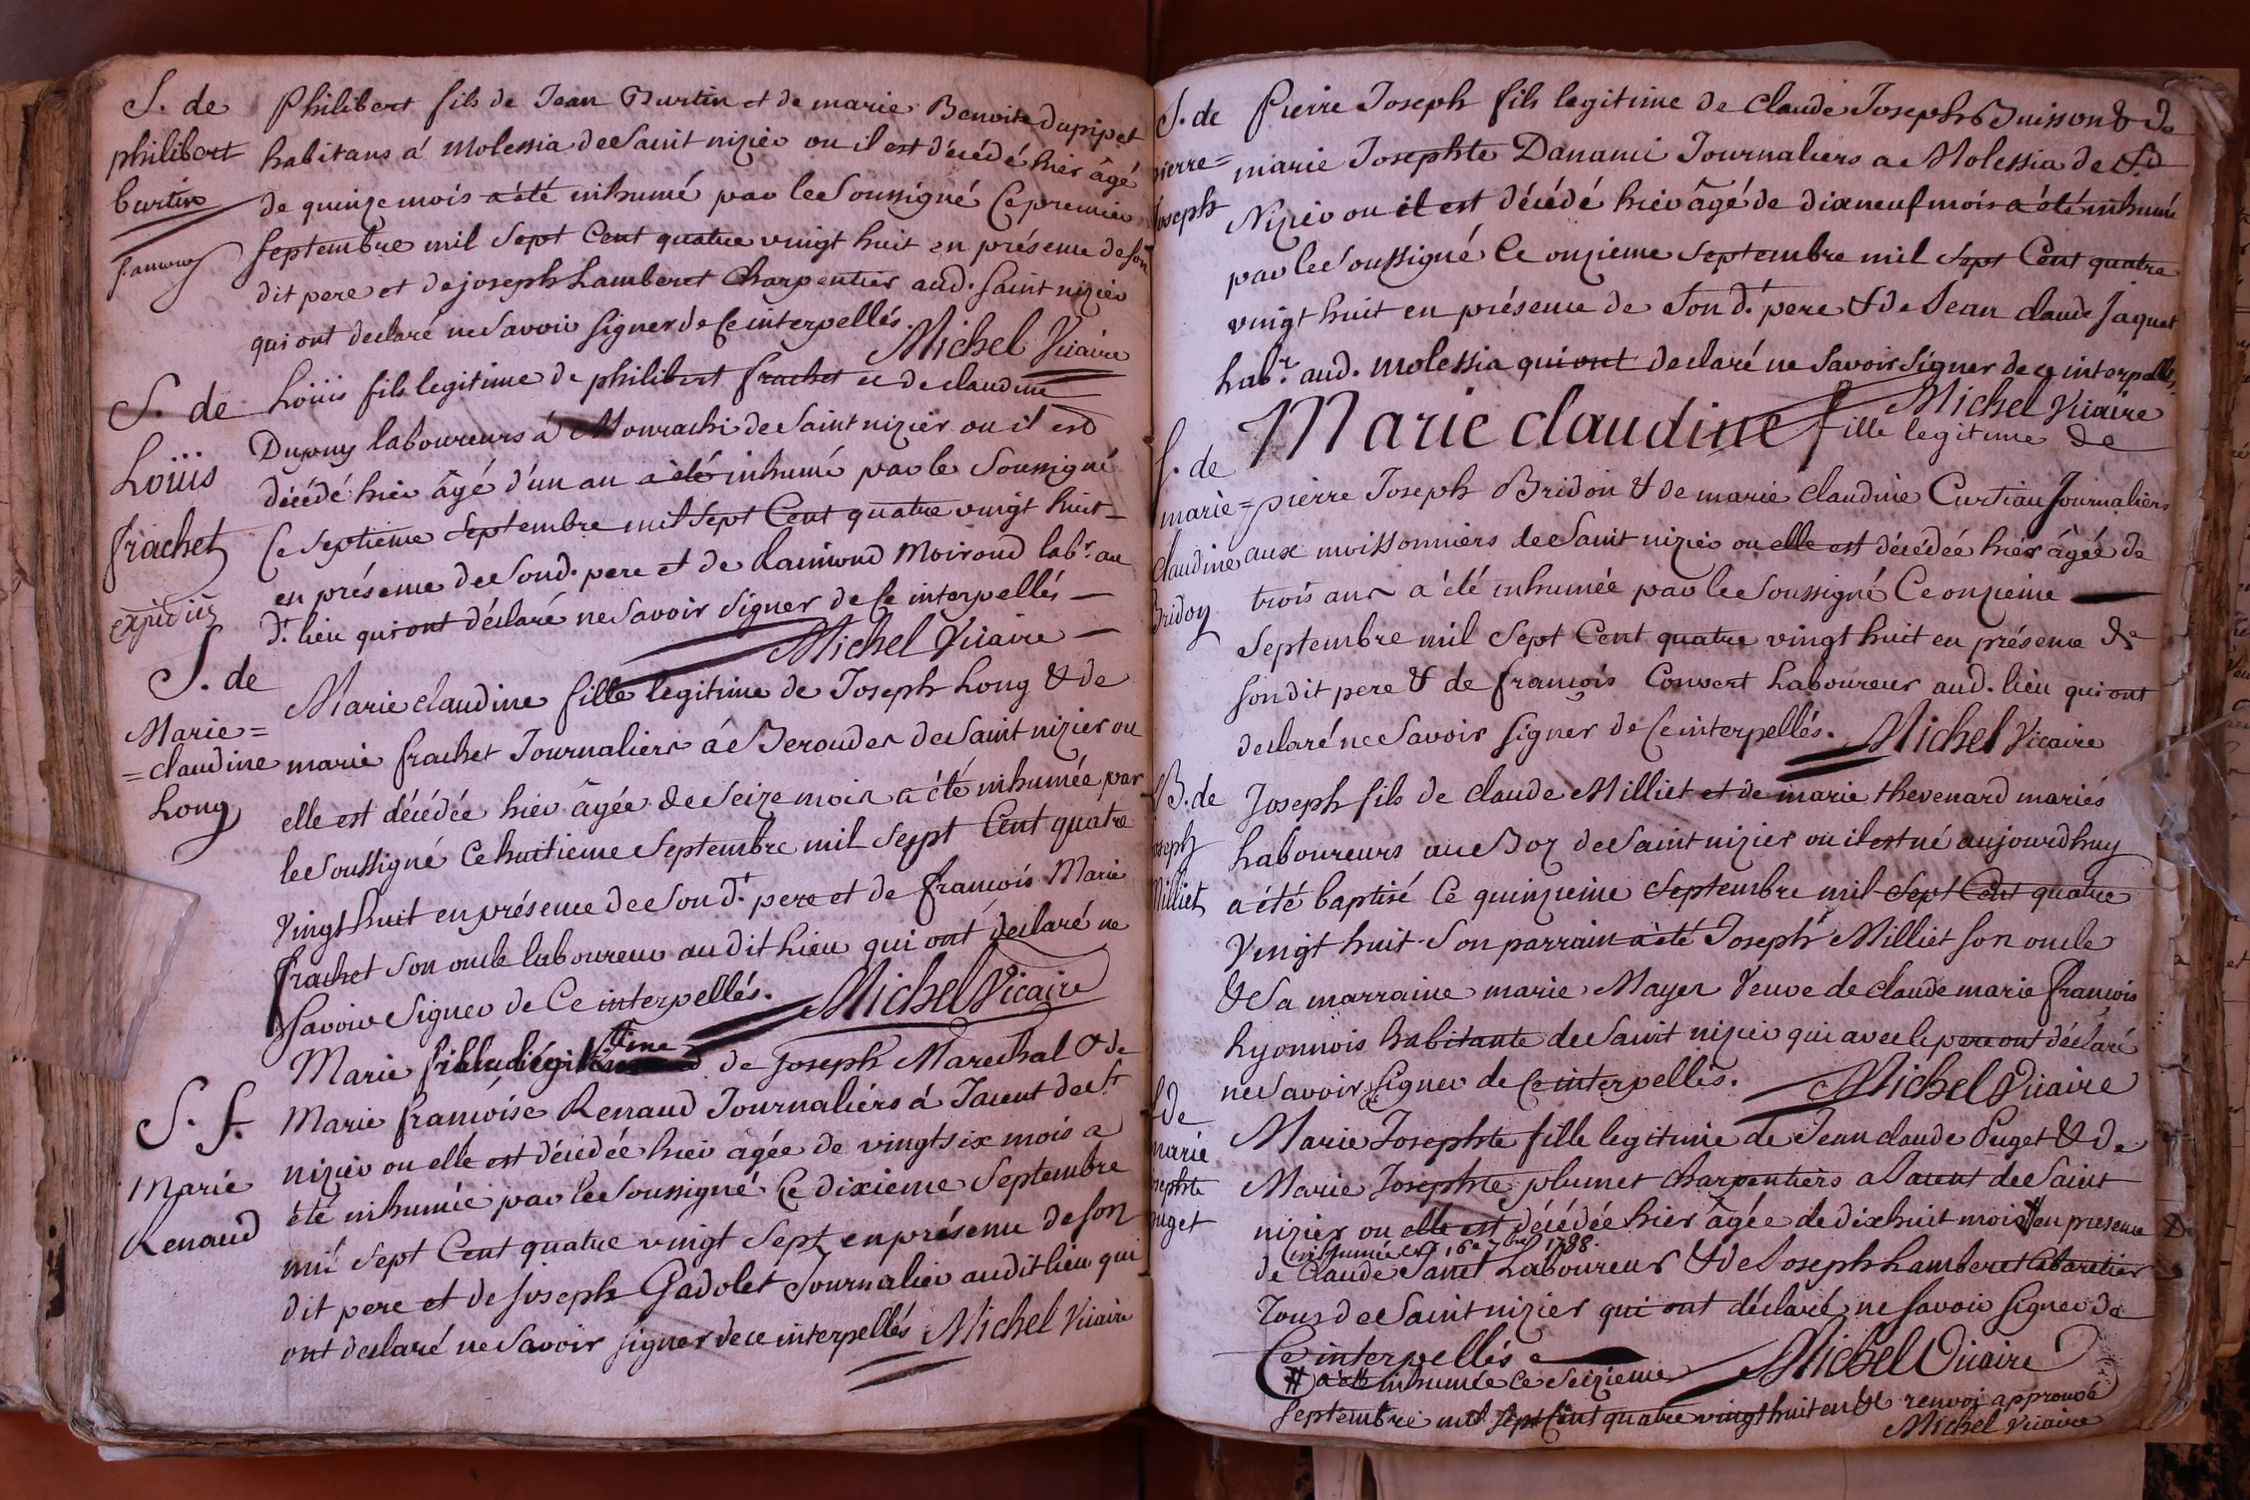 S. de
philibert
burtin
Philibert fils de Jean Burtin et de marie Benoite Dupipet
habitans á Molessia de Saint nizier ou il est décédé hier âgé
de quinze mois a été inhumé par le Soussigné Ce premier
Septembre mil Sept Cent quatre vingt huit en présence de son
dit pere et de joseph Lamberet Charpentier aud. Saint nizier
qui ont declaré ne Savoir signer de Ce interpellés.
Michel Vicaire
S. de
Loüis
frachet
Loüis fils legitime de philibert frachet et de claudine
laboureurs á de Saint nizier ou il est
décédé hier âgé d'un an a été inhumé par le Soussigné
Ce Septieme Septembre mil Sept Cent quatre vingt huit
en présence de Sond. pere et de Raimond Moiroud labr. au
dt. lieu qui ont déclaré ne Savoir signer de Ce interpellés
Michel Vicaire
S. de
Marie=
=claudine
Long
Marie claudine fille legitime de Joseph Long & de
marie frachet Journaliers á Berouder de Saint nizier ou
elle est décédée hier âgée de Seize mois a été inhumée par
le Soussigné Ce huitieme Septembre mil Sept Cent quatre
Vingt huit en présence de Son dt. pere et de francois Marie
frachet Son oncle laboureur au dit Lieu qui ont declaré ne
Savoir Signer de Ce interpellés. Michel Vicaire
S. f.
Marie
Renaud
Marie fille légitime de Joseph Marechal & de
Marie francoise Renaud Journaliérs á Jacent de St.
nizier ou elle est décédée hier agée de vingt six mois a
été inhumée par le Soussigné Ce dixieme Septembre
mil Sept Cent quatre vingt Sept en présence de son
dit pere et de joseph Gadolet Journalier audit lieu qui
ont declaré ne Savoir signer de ce interpellés Michel Vicaire
S. de
pierre=
Joseph
Pierre Joseph fils legitime de Claude Joseph Buisson & de
marie Josephte Dananci Journaliers a Molessia de St.
Nizier ou il est décédé hier âgé de dix neuf mois a été inhumé
par le Soussigné Ce onzieme Septembre mil Sept Cent quatre
vingt huit en présence de Son dt. pere & de Jean claude Jaquet
habt. aud. Molessia qui ont declaré ne Savoir Signer de ce interpellés,
Michel Vicaire
S. de
marie=
Claudine
Bridon
Marie claudine fille legitime de
pierre Joseph Bridon & de marie claudine Curtiau Journaliers
aux moissonniers de Saint nizier ou elle est décédée hier âgée de
trois ans a été inhumée par le Soussigné Ce onzieme
Septembre mil Sept Cent quatre vingt huit en présence de
son dit pere & de françois Convert Laboureur aud. lieu qui ont
declaré ne Savoir signer de Ce interpellés. Michel Vicaire
B. de
Joseph
Milliet
Joseph fils de claude Milliet et de marie thevenard mariés
Laboureurs au Boz de Saint nizier ou il est né aujourdhuy
a été baptisé Ce quinzieme Septembre mil Sept Cent quatre
Vingt huit Son parrain a été Joseph Milliet son oncle
& Sa marraine marie Mayer Veuve de claude marie françois
Lyonnois habitante de Saint nizier qui avec le pere ont déclaré
ne Savoir Signer de Ce interpellés. Michel Vicaire
S de
marie
josephte
puget
Marie Josephte fille legitime de Jean claude Puget & de
Marie Josephte plumet Charpentiers a Jacent de Saint
nizier ou elle est décédée hier âgée de dix huit mois # en presence
inhumée le 16e 7bre 1788.
de Claude Laboureur & de Joseph Lamberet Cabaretier
Tous de Saint nizier qui ont déclaré ne savoir signer de
Ce interpellés Michel Vicaire
# a été inhumée Ce Seizieme
Septembre mil Sept Cent quatre vingt huit en & renvoi approuvé
Michel Vicaire